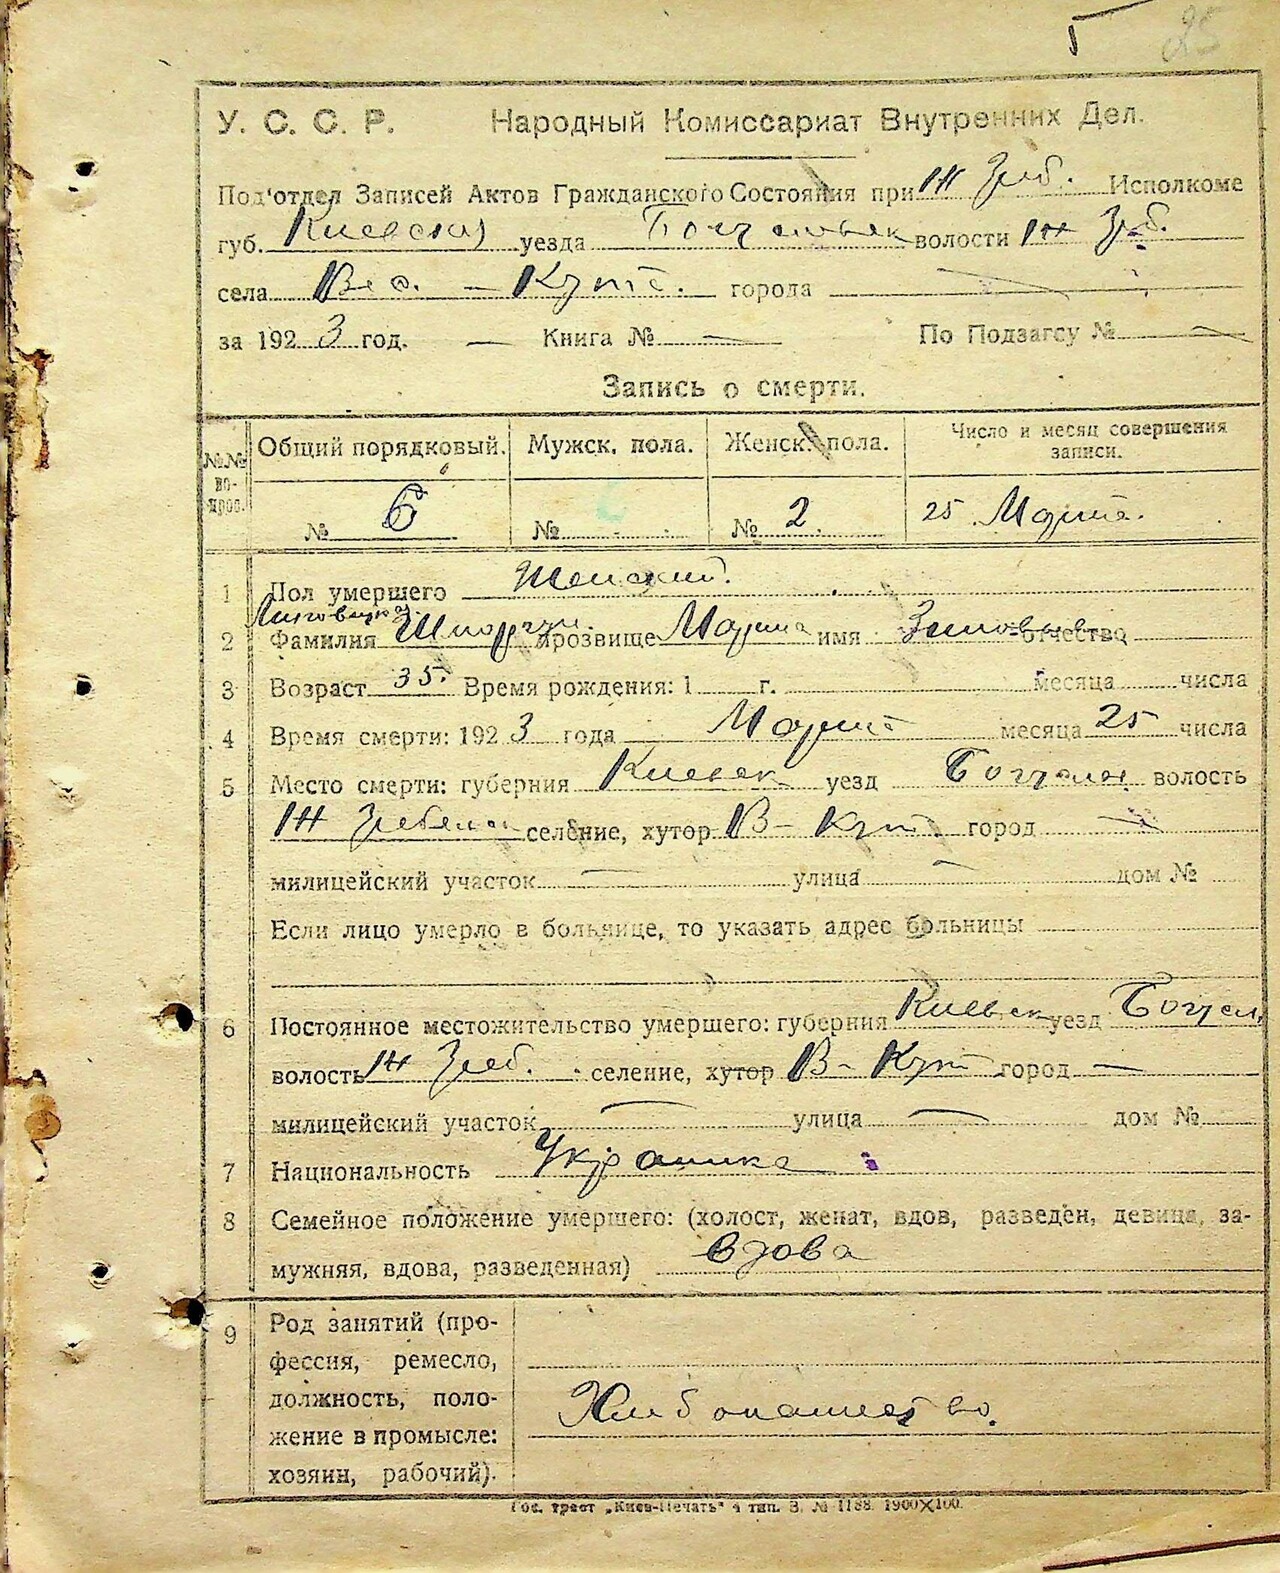 25
У. С. С. Р. Народный Комиссариат Внутренних Дел.
Под'отдел Записей Актов Гражданского Состояния при Исполкоме
губ. Киевская уезда волости
села Вел. – Кут. города
за 1923 год. — Книга № — По Подзагсу №
Запись о смерти.
№№ во-прос. Общий порядковый. Мужск. пола. Женск. пола. Число и месяц совершения записи.
№ 6 № № 2. 25 Марта.
1 Пол умершего Женский.
2 Фамилия прозвище Марина имя отчество
3 Возраст 35. Время рождения: 1 г. месяца числа
4 Время смерти: 1923 года Март месяца 25 числа
5 Место смерти: губерния Киевск уезд волость
селение, хутор В – Кут город —
милицейский участок — улица — дом №
Если лицо умерло в больнице, то указать адрес больницы
6 Постоянное местожительство умершего: губерния Киевск уезд
волость селение, хутор В – Кут город —
милицейский участок — улица — дом №
7 Национальность Украинка
8 Семейное положение умершего: (холост, женат, вдов, разведен, девица, за-
мужняя, вдова, разведенная) вдова
9 Род занятий (про-
фессия, ремесло,
должность, поло-
жение в промысле:
хозяин, рабочий).
Хлибопашество.
Гос. трест „Киев-Печать" 4 тип. З. № 1188. 1900×100.